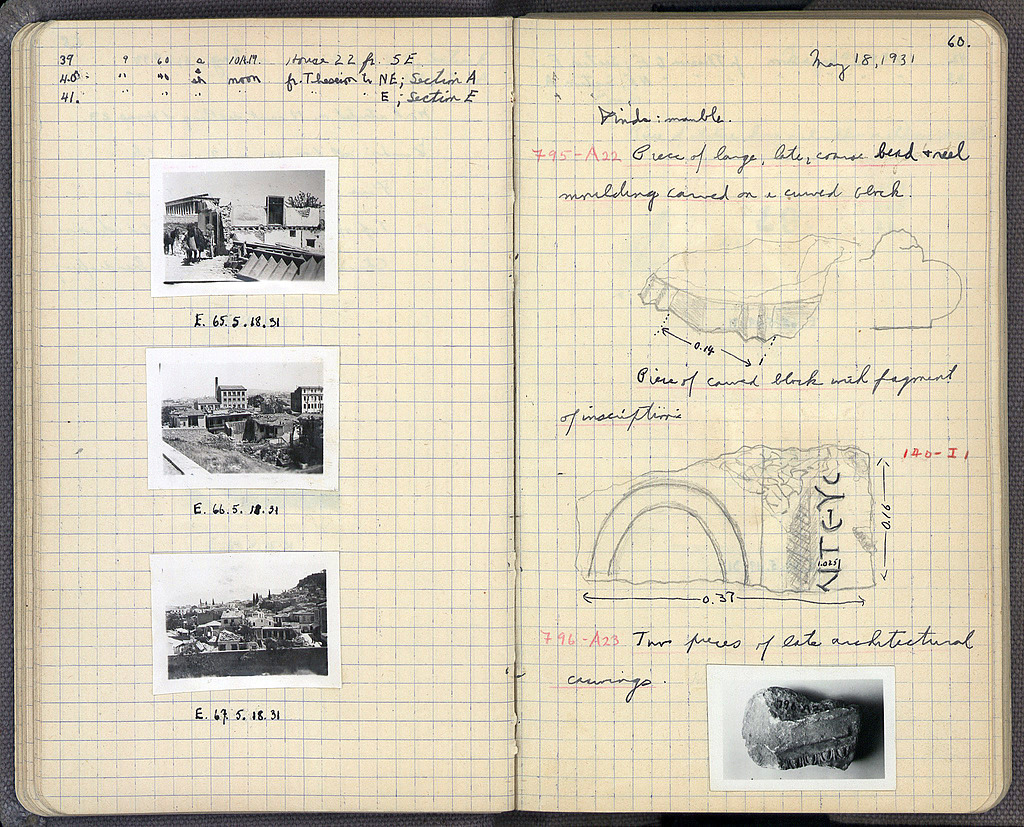 39 9 60 a 10 A.M. House 22 fr. SE
40 " 40 noon fr. Theseion to NE; Section A
41. " " " E; Section E
E. 65. 5. 18. 31
E. 66. 5. 18. 31
E. 67. 5. 18. 31
60.
May 18, 1931
Finds: marble.
795-A22 Piece of large, late, coarse bead & reel
moulding carved on a curved block.
0.14
Piece of carved block with fragment
of inscription:
140-I1
0.16
0.37
796-A23 Two pieces of late architectural
carvings.